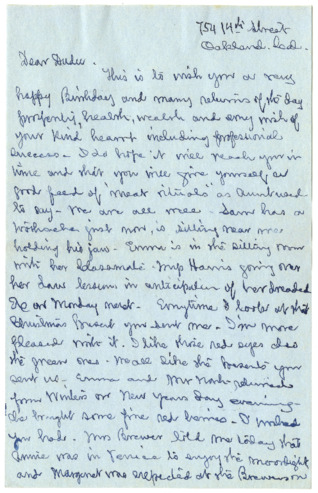 754 14th Street
Oakland. Cal.
Dear Dudu.
This is to wish you a very
happy Birthday and many returns of the day
prosperity, health, wealth and every wish of
your kind heart including professional
success - I do hope it will reach you in
time and that you will give yourself a
good feed of "meat rituals" as Aunt used
to say - We are all well - Sam has a
toothache just now, is sitting near me
holding his jaw - Emma is in the sitting room
with her classmate Miss Harris going over
her Law lessons in anticipation of her dreaded
Ex on Monday next - Everytime I look at that
Christmas present you sent me - I'm more
pleased with it. I like those red eyes also
the green ones. We all like the presents you
sent us - Emma and Mr returned
from Winters on New Years Day evening -
he brought some fine red berries - I wished
you had - Mrs Brewer told me today that
Annie was in Venice to enjoy the moonlight
and Margaret was expected at the